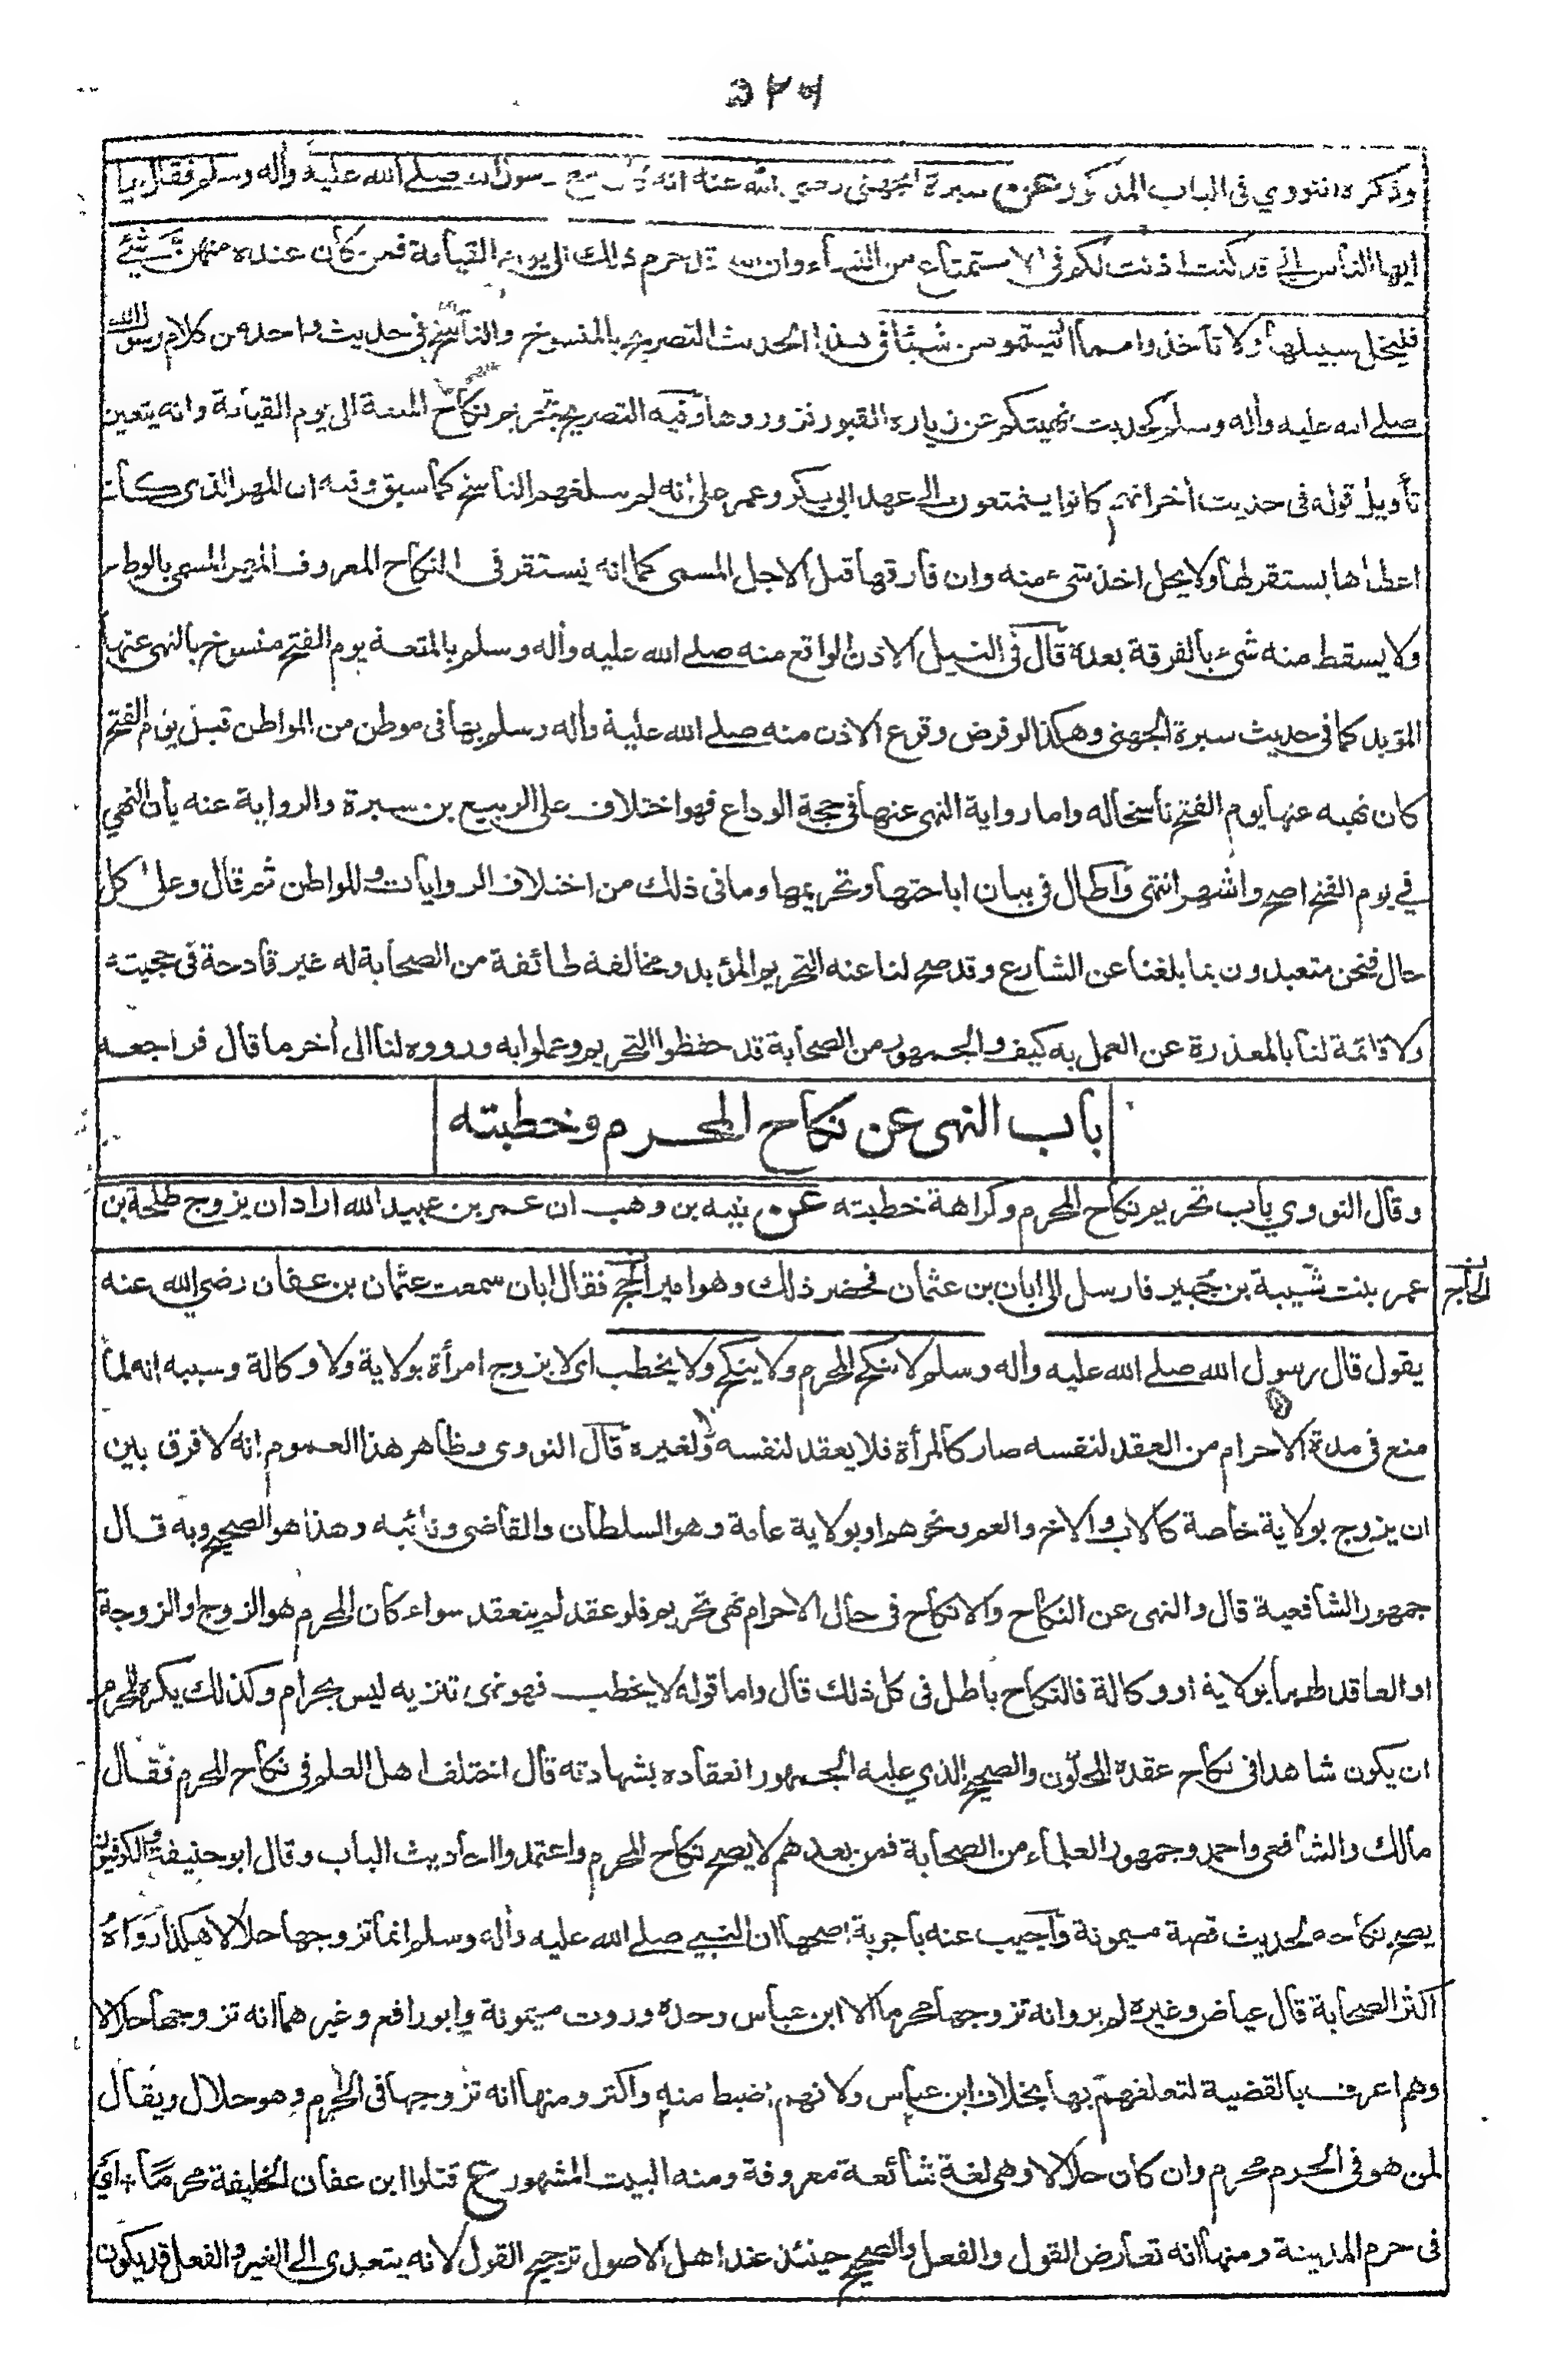 ٥٢٦
وذكره النووي في الباب المذكور عن سبرة الجهني رضي الله عنه انه كان مع رسول الله صلے الله عليه وأله وسلم فقال يا
ايها الناس إني قد كنت اذنت لكم في الاستمتاع من النساء وان الله قد حرم ذلك الى يوم القيامة فمن كان عنده منهن شيئ
فليخل سبيلها ولا تأخذوا مما أتيتموهن شيئا في هذا الحديث التصريح بالمنسوخ والناسخ في حديث واحد من كلام رسول الله
صلے الله عليه وأله وسلم كحديث نهيتكم عن زيارة القبور فزوروها وفيه التصريح بتحريم نكاح المتعة الى يوم القيامة وانه يتعين
تأويل قوله في حديث أخر انهم كانوا يتمتعون الى عهد ابي بكر وعمر على انه لم يبلغهم الناسخ كما سبق وفيه ان المهر الذي كان
اعطاها يستقر لها ولا يحل اخذ شيء منه وان فارقها قبل الاجل المسمى كما انه يستقر في النكاح المعروف المهر المسمى بالوطء
ولا يسقط منه شيء بالفرقة بعده قال في النيل الاذن الواقع منه صلے الله عليه وأله وسلم بالمتعة يوم الفتح منسوخ بالنهي عنها
المؤبد كما في حديث سبرة الجهني وهكذا لو فرض وقوع الاذن منه صلے الله عليه وأله وسلم بها في موطن من المواطن قبل يوم الفتح
كان نهيه عنها يوم الفتح ناسخا له واما رواية النهي عنها في حجة الوداع فهو اختلاف على الربيع بن سبرة والرواية عنه بأن النهي
في يوم الفتح اصح واشهر انتهى وأطال في بيان اباحتها وتحريمها وما في ذلك من اختلاف الروايات والمواطن ثم قال وعلى كل
حال فنحن متعبدون بما بلغنا عن الشارع وقد صح لنا عنه التحريم المؤبد ومخالفة طائفة من الصحابة له غير قادحة في حجيته
ولا قائمة لنا بالمعذرة عن العمل به كيف والجمهور من الصحابة قد حفظوا التحريم وعملوا به ورووه لنا الى أخر ما قال فراجعه
باب النهى عن نكاح المحرم وخطبته
وقال النووي باب تحريم نكاح المحرم وكراهة خطبته عن نبيه بن وهب ان عمر بن عبيد الله اراد ان يزوج طلحة بن
عمر بنت شيبة بن جبير فارسل الى ابان بن عثمان فحضر ذلك وهو امير الحج فقال ابان سمعت عثمان بن عفان رضي الله عنه
الحاج
يقول قال رسول الله صلے الله عليه وأله وسلم لا ينكح المحرم ولا ينكح ولا يخطب اى لا يزوج امرأة بولاية ولا وكالة وسببه انه لما
منع في مدة الاحرام من العقد لنفسه صار كالمرأة فلا يعقد لنفسه ولا لغيره قال النووي وظاهر هذا العموم انه لا فرق بين
ان يزوج بولاية خاصة كالاب والاخ والعم ونحوهم او بولاية عامة وهو السلطان والقاضي ونائبه وهذا هو الصحيح وبه قال
جمهور الشافعية قال والنهى عن النكاح والانكاح في حال الاحرام نهى تحريم فلو عقد لم ينعقد سواء كان المحرم هو الزوج او الزوجة
او العاقد لهما بولاية او وكالة فالنكاح باطل في كل ذلك قال واما قوله لا يخطب فهو نهى تنزيه ليس بحرام وكذلك يكره للمحرم
ان يكون شاهدا في نكاح عقده المحلون والصحيح الذي عليه الجمهور انعقاده بشهادته قال اختلف اهل العلم في نكاح المحرم فقال
مالك والشافعي واحمد وجمهور العلماء من الصحابة فمن بعدهم لا يصح نكاح المحرم واعتمدوا احاديث الباب وقال ابو حنيفة والكوفيون
يصح نكاحه لحديث قصة ميمونة وأجيب عنه بأجوبة اصحها ان النبي صلے الله عليه وأله وسلم انما تزوجها حلالا هكذا رواه
اكثر الصحابة قال عياض وغيره لم يرو انه تزوجها محرما الا ابن عباس وحده وروت ميمونة وابو رافع وغيرهما انه تزوجها حلالا
وهم اعرف بالقضية لتعلقهم بها بخلاف ابن عباس ولانهم اضبط منه واكثر ومنها انه تزوجها في الحرم وهو حلال ويقال
لمن هو في الحرم محرم وان كان حلالا وهى لغة شائعة معروفة ومنه البيت المشهور ع قتلوا ابن عفان الخليفة محرما + أي
في حرم المدينة ومنها انه تعارض القول والفعل والصحيح حينئذ عند اهل الاصول ترجيح القول لانه يتعدى الى الغير والفعل قد يكون